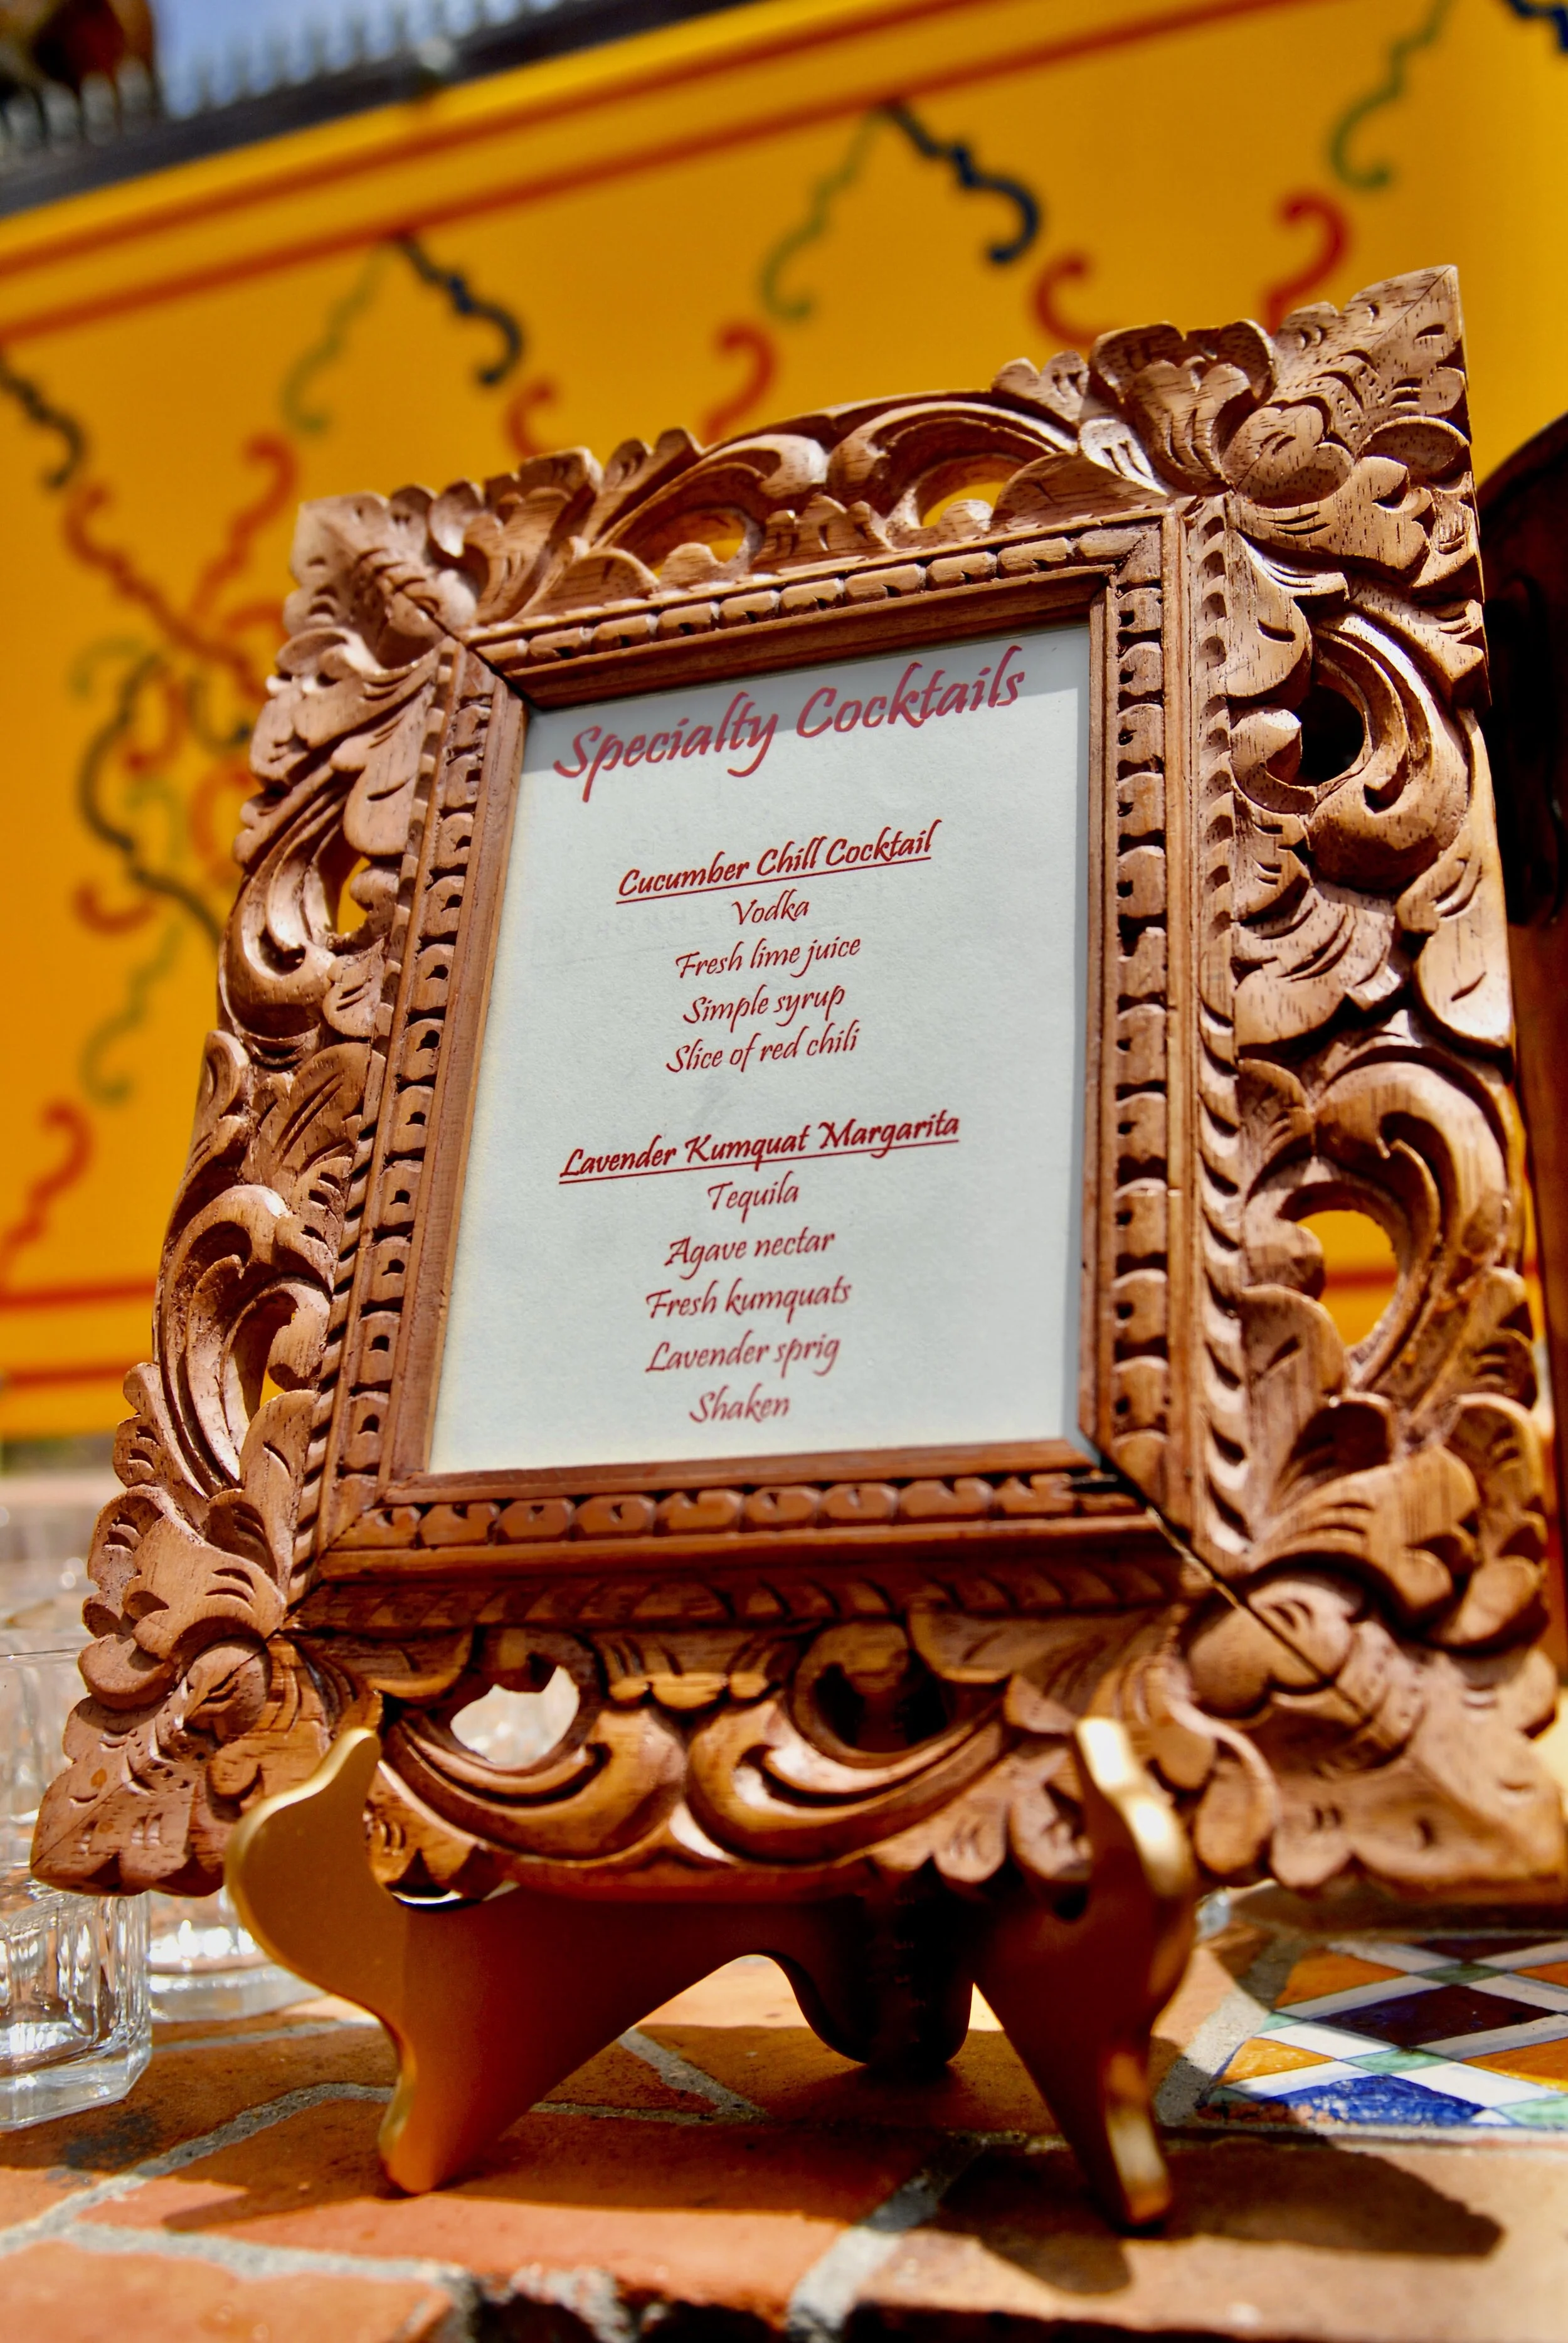 Specialty Cocktails
Cucumber Chill Cocktail
Vodka
Fresh lime juice
Simple syrup
Slice of red chili
Lavender Kumquat Margarita
Tequila
Agave nectar
Fresh kumquats
Lavender sprig
Shaken